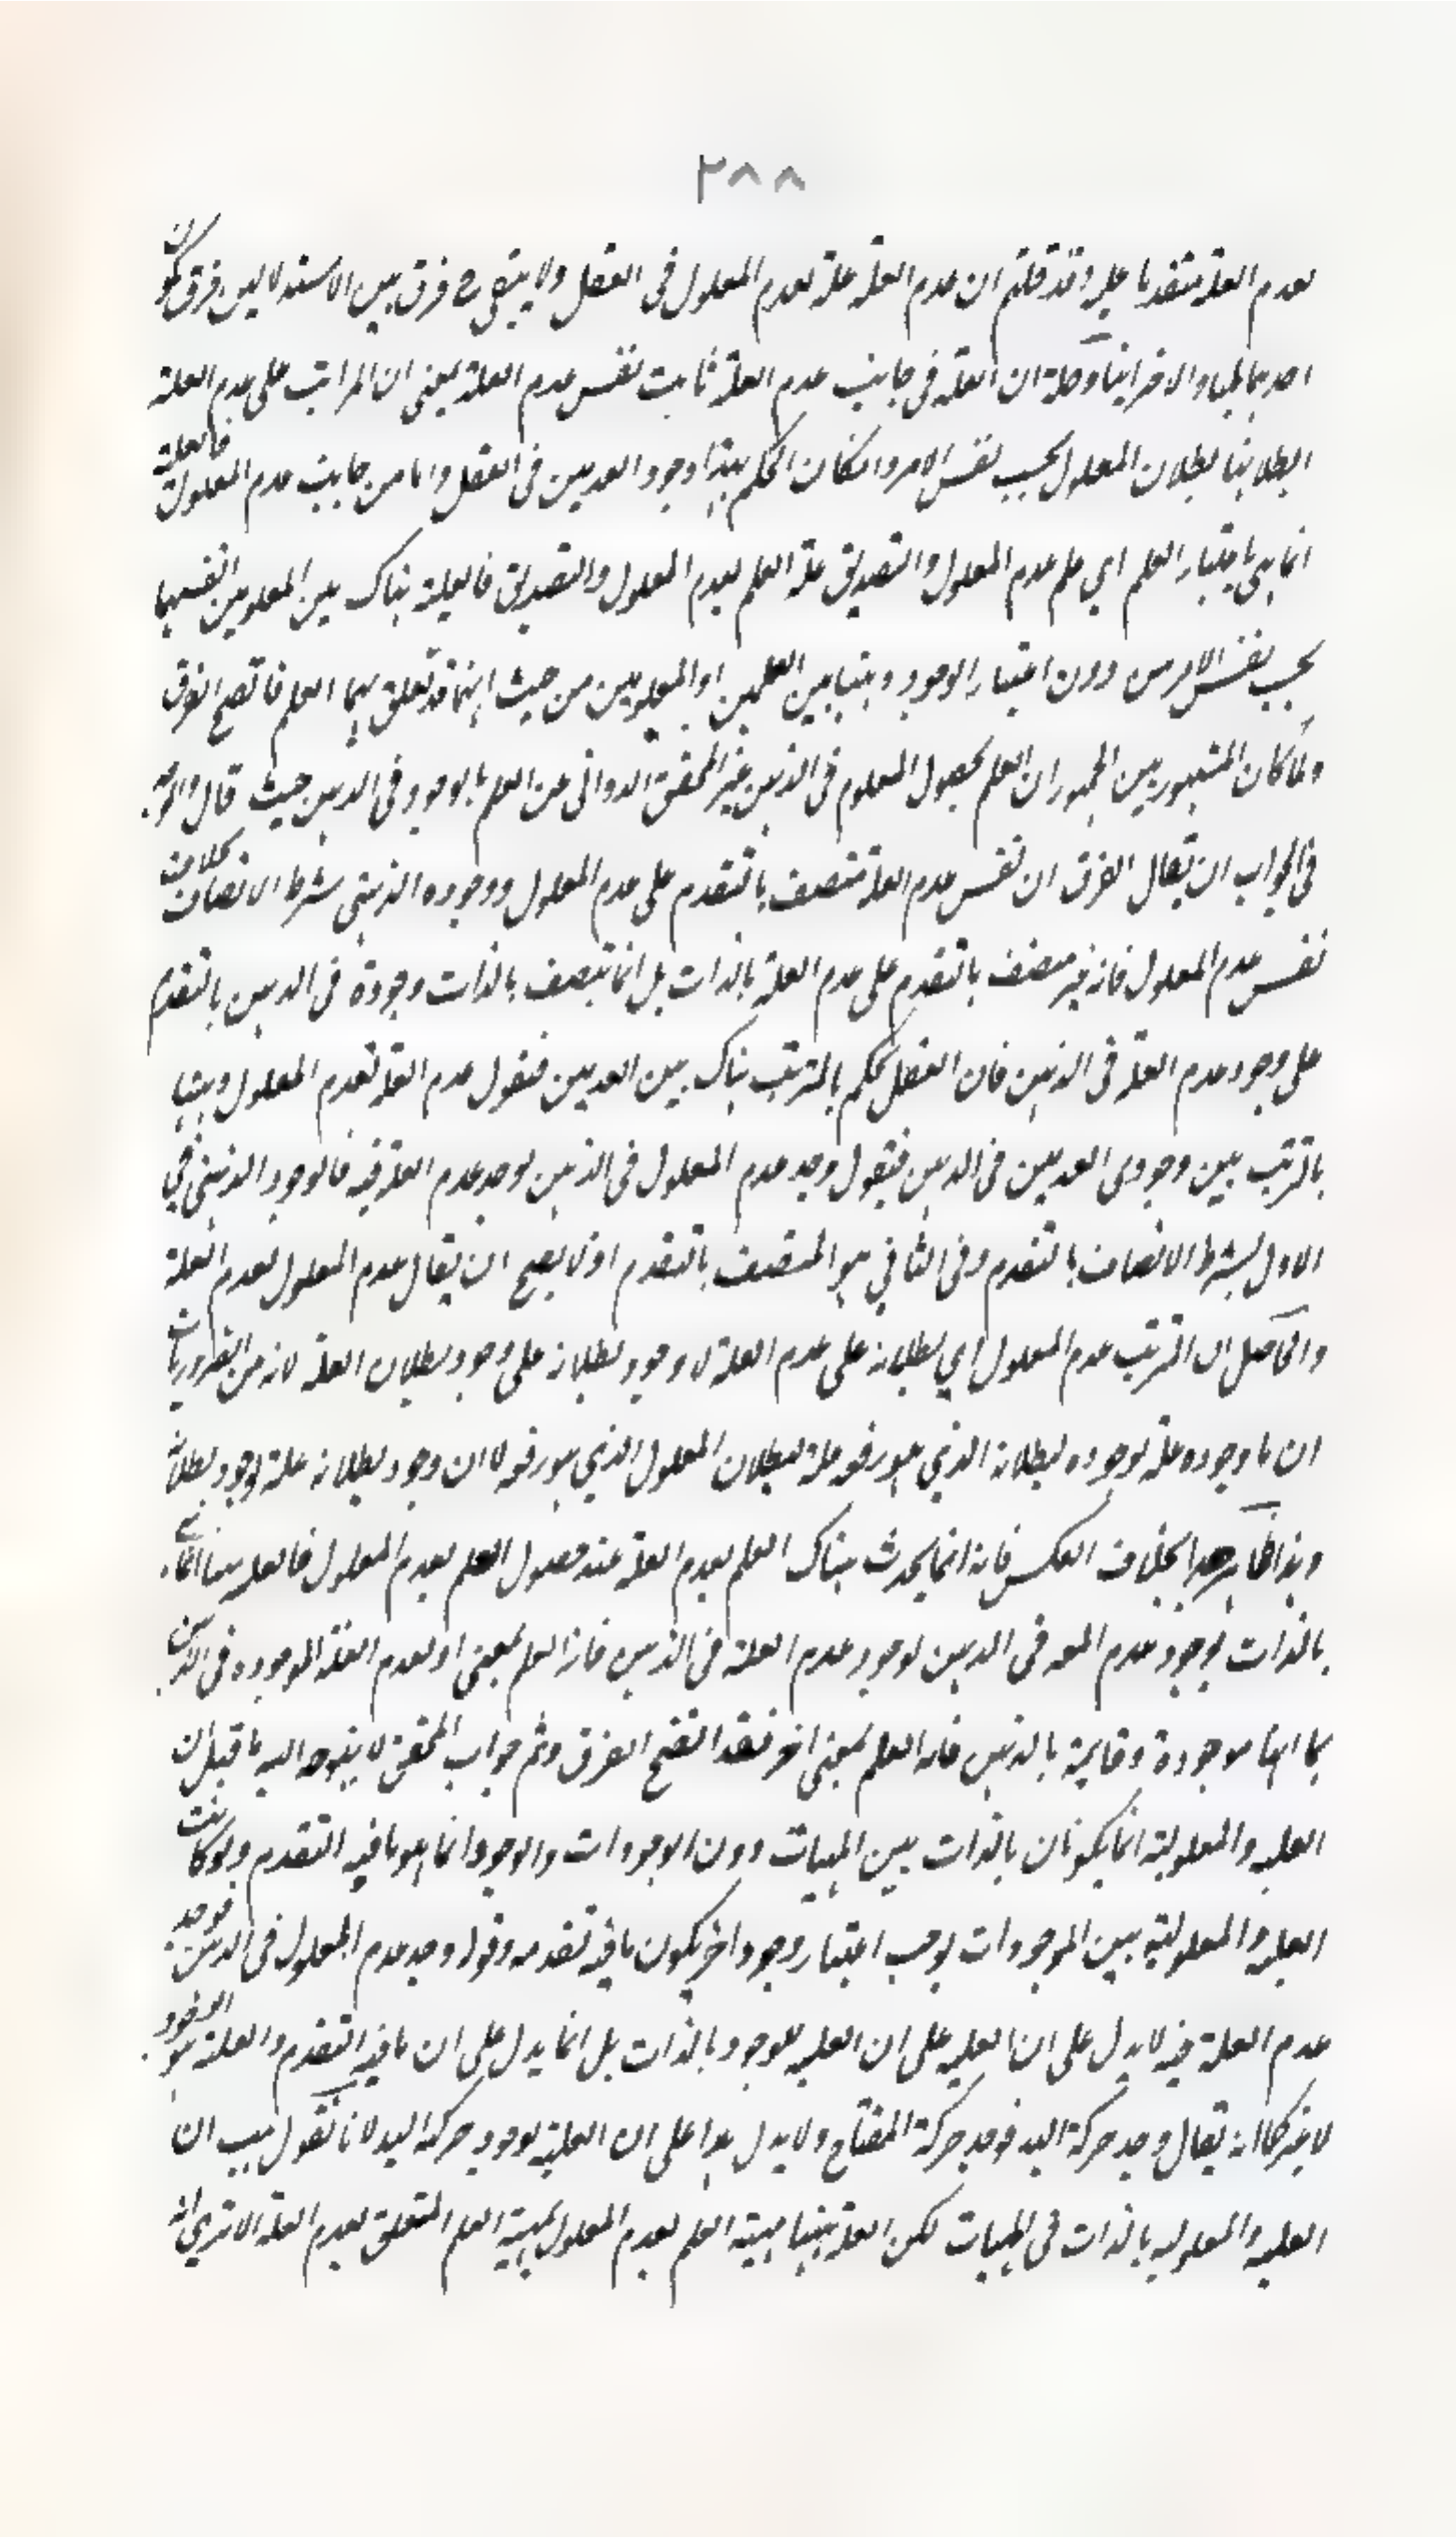 ٢٨٨
لعدم العلة متقدما عليه وقد قلتم ان عدم العلة علة لعدم المعلول فى العقل ولا يبقى ح فرق بين الاستدلالين فرق كون
احدهما لميا والاخر انيا وحله ان العلة فى جانب عدم العلة ثابت نفس عدم العلة يعنى ان المراتب على عدم العلة
لبطلانها بطلان المعلول بحسب نفس الامر وان كان الحكم بهذا وجود العدمين فى العقل واما من جانب عدم المعلول فالعلية
انما هى باعتبار العلم اي علم عدم المعلول والتصديق علة العلم بعدم المعلول والتصديق فالعلية هناك بين المعلومين انفسهما
بحسب نفس الامر من دون اعتبار الوجود وههنا بين العلمين او المعلومين من حيث انهما قد تعلق بهما العلم فاتضح الفرق
ولما كان المشهور بين الجمهور ان العلم بحصول المعلوم فى الذهن عبر المحقق الدوانى عن العلم بالوجود فى الذهن حيث قال والوجه
فى الجواب ان يقال الفرق ان نفس عدم العلة متصف بالتقدم على عدم المعلول ووجوده الذهنى شرط الاتصاف بخلاف
نفس عدم المعلول فانه غير متصف بالتقدم على عدم العلة بالذات بل انما يتصف بالذات وجودة فى الذهن بالتقدم
على وجود عدم العلة فى الذهن فان العقل يحكم بالترتب هناك بين العدمين فنقول عدم العلة لعدم المعلول وههنا
بالترتب بين وجودى العدمين فى الذهن فيقول وجد عدم المعلول فى الذهن لوجد عدم العلة فيه فالوجود الذهنى فى
الاول بشرط الاتصاف بالتقدم وفى الثانى هو المتصف بالتقدم اولا يصح ان يقال عدم المعلول لعدم العلة
والحاصل ان الترتب عدم المعلول اي بطلانه على عدم العلة لا وجود بطلانه على وجود بطلان العلة لانه من الضروريات
ان ما وجوده علة لوجوده لبطلانه الذي هو رفعه علة لبطلان المعلول الذي هو رفعه لا ان وجود بطلانه علة لوجود بطلانه
وهذا ظاهر جدا بخلاف العكس فانه انما يحدث هناك العلم بعدم العلة عند حصول العلم بعدم المعلول فالعلية ههنا انما هى
بالذات لوجود عدم المعه فى الذهن لوجود عدم العلة فى الذهن فانه العلم بمعنى او لعدم العلة الموجوده فى الذهن
بما انها موجودة وقايمة بالذهن فانه العلم بمعنى اخر فقد اتضح الفرق وتم جواب المحقق لا يتوجه اليه ما قيل ان
العليه والمعلولية انما يكونان بالذات بين المهيات دون الوجودات والوجود انما هو ما فيه التقدم ولو كانت
العليه والمعلولية بين الموجودات يوجب اعتبار وجود اخر يكون ما فيه تقدمه وقول وجد عدم المعلول فى الذهن فوجد
عدم العلة فيه لا يدل على ان العليه على ان العليه للوجود بالذات بل انما يدل على ان ما فيه التقدم والعلة هو الوجود
لا غير كما انه يقال وجد حركة اليد فوجد حركة المفتاح ولا يدل هذا على ان العلية لوجود حركة اليد لانا نقول هب ان
العليه والمعلوليه بالذات فى المهيات لكن العلة ههنا مهية العلم بعدم المعلول لمهية العلم المتعلق بعدم العلة الا ترى انه